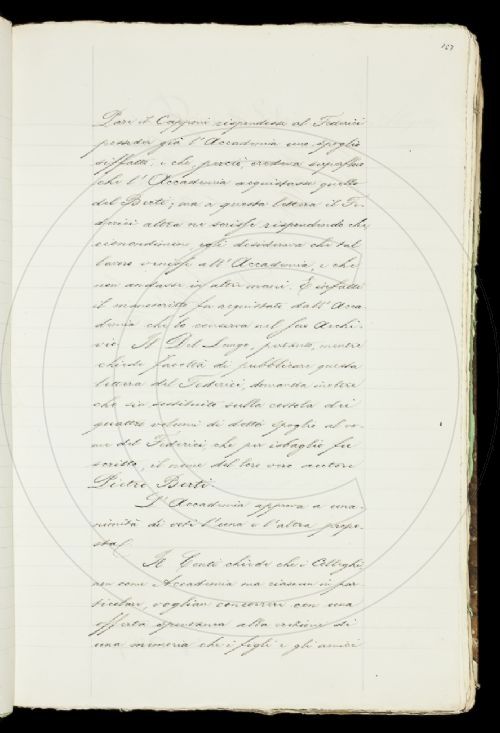 157
Pare il Capponi rispondesse al Federici
posseder già l'Accademia uno spoglio
siffatto, e che, perciò, credeva superfluo
che l'Accademia acquistasse quello
del Berti; ma a questa lettera il Fe-
derici altra ne scrisse rispondendo che
cionondimeno egli desiderava che tal
lavoro venisse all'Accademia, e che
non andasse in altre mani. E infatti
il manoscritto fu acquistato dall'Acca
demia che lo conserva nel suo Archi-
vio. Il Del Lungo, pertanto, mentre
chiede facoltà di pubblicare questa
lettera del Federici, domanda inoltre
che sia sostituito sulla costola dei
quattro volumi di detto spoglio al no-
me del Federici, che per isbaglio fu
scritto, il nome del loro vero autore
Pietro Berti.
L'Accademia approva a una-
nimità di voti l'una e l'altra propo-
sta.
Il Conti chiede che i Colleghi
non come Accademia ma ciascun in par
ticolare, vogliano concorrere con una
offerta spontanea alla erezione di
una memoria che i figli e gli amici